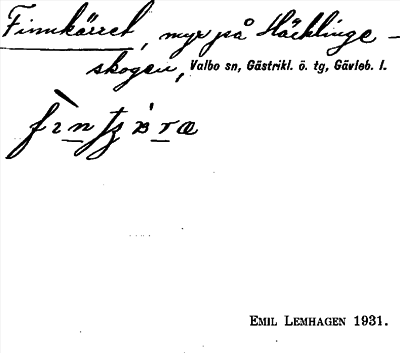 Finnkärret, myr på Häcklinge-
skogen, Valbo sn, Gästrikl. ö. tg, Gävleb. l.
EMIL LEMHAGEN 1931.